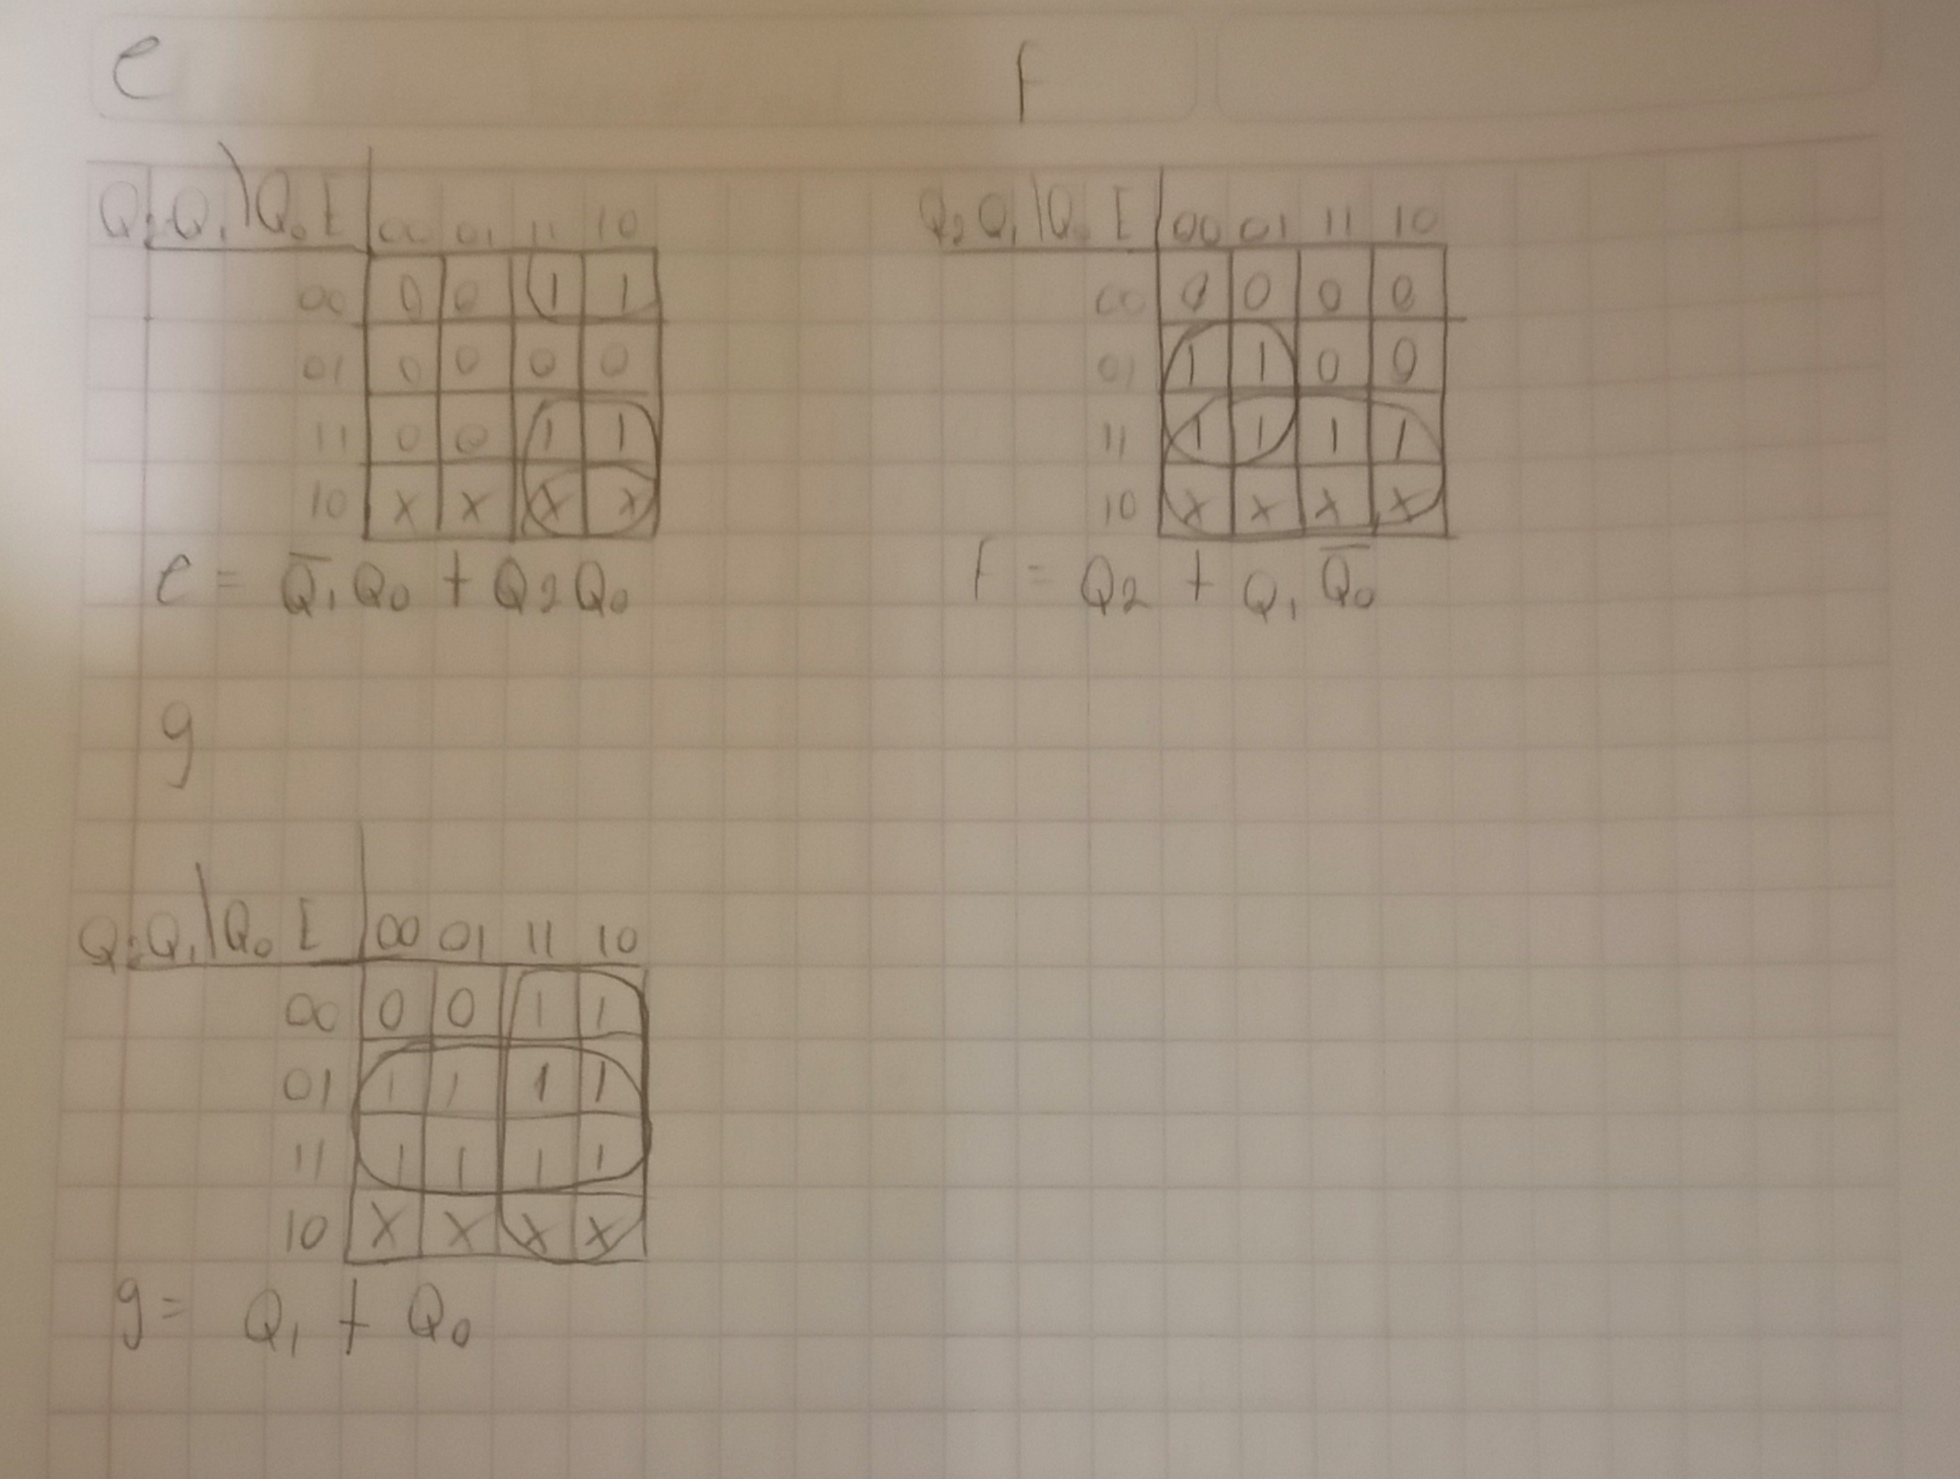 e
Q₂Q₁\Q₀ E 00 01 11 10
00 0 0 1 1
01 0 0 0 0
11 0 0 1 1
10 X X X X
e = Q̅₁Q₀ + Q₂Q₀
f
Q₂Q₁\Q₀ E 00 01 11 10
00 0 0 0 0
01 1 1 0 0
11 1 1 1 1
10 X X X X
f = Q₂ + Q₁Q̅₀
g
Q₂Q₁\Q₀ E 00 01 11 10
00 0 0 1 1
01 1 1 1 1
11 1 1 1 1
10 X X X X
g = Q₁ + Q₀